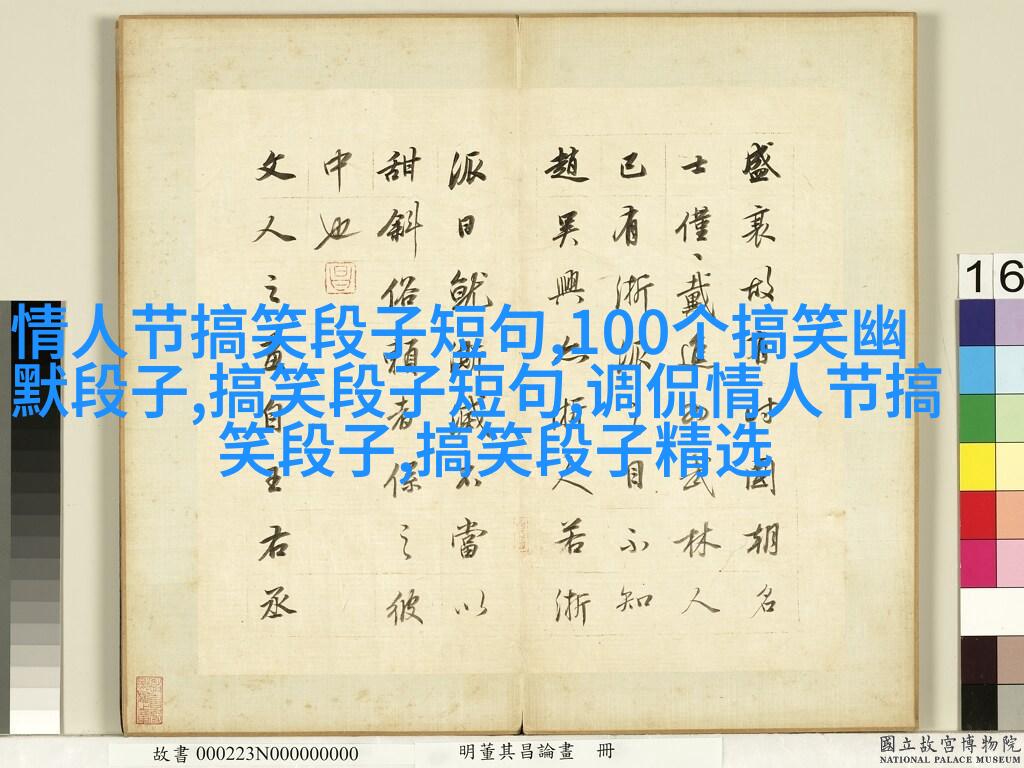 情人节搞笑段子短句,100个搞笑幽
默段子,搞笑段子短句,调侃情人节搞
笑段子,搞笑段子精选
盛衰故有時國朝名
士僅戴進為武林人
已有浙派之目不知
趙吳興亦浙人若浙
派日就澌滅不當以
甜斜俗賴者係之彼
中也
文人之畫自王右丞
16
故書 000223N000000000
明董其昌論畫 冊
國立故宮博物院
NATIONAL PALACE MUSEUM